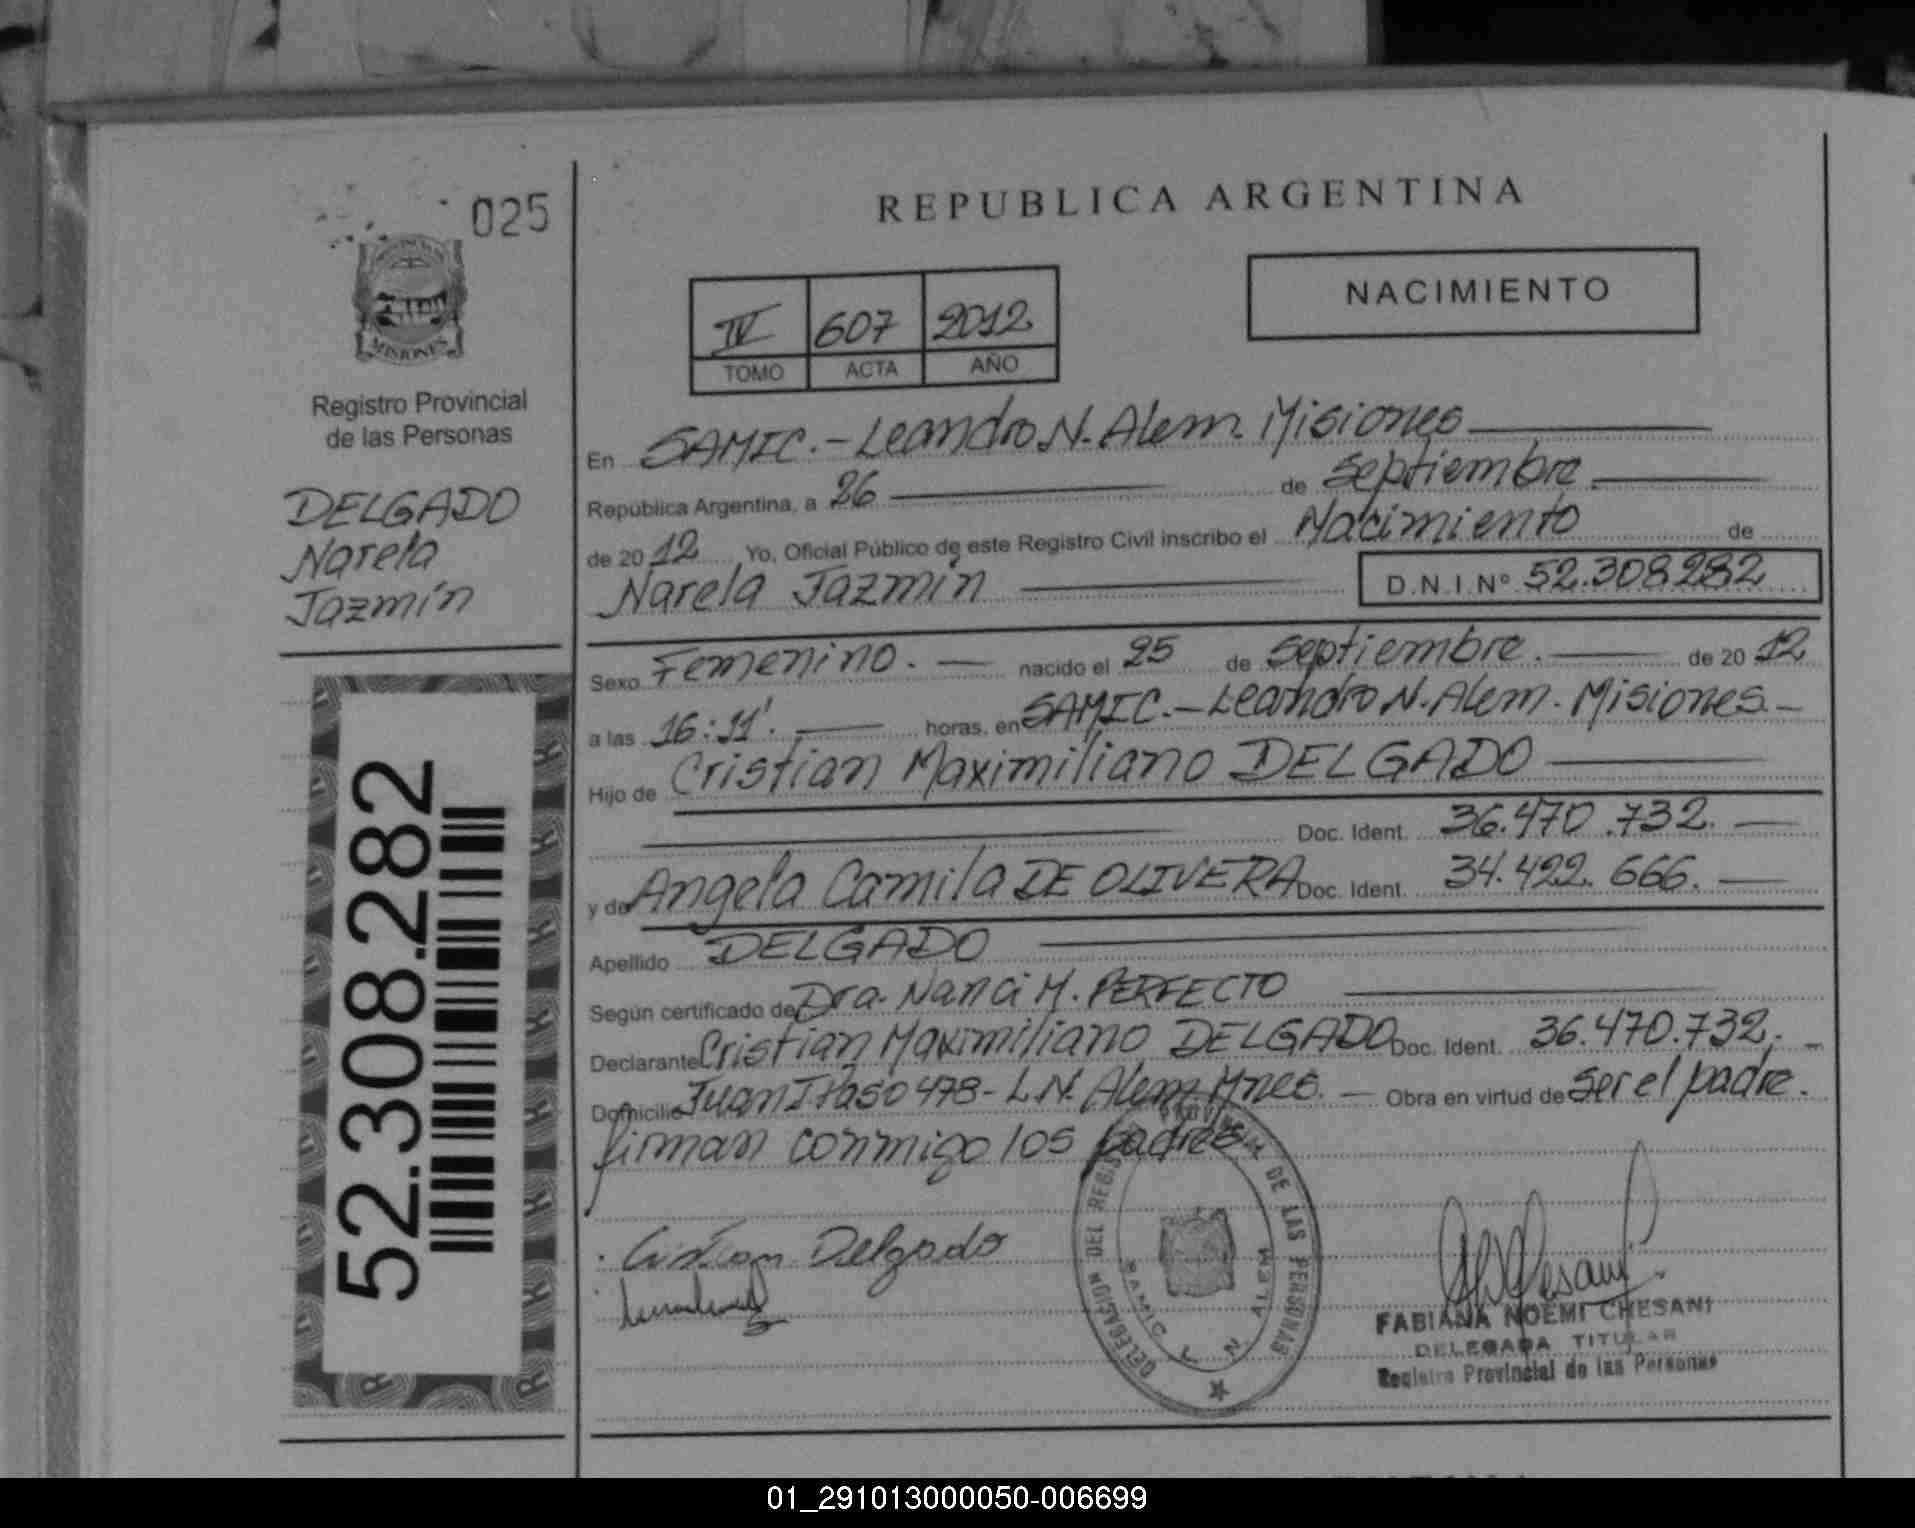 025
REPUBLICA ARGENTINA
NACIMIENTO
IV 607 2012
TOMO ACTA AÑO
MISIONES
Registro Provincial
de las Personas
DELGADO
Narela
Jazmín
52.308.282
En SAMIC.- Leandro N. Alem. Misiones
República Argentina, a 26 de septiembre.
de 2012 Yo, Oficial Público de este Registro Civil inscribo el Nacimiento de
Narela Jazmín D.N.I.Nº 52.308.282
Sexo Femenino. nacido el 25 de septiembre. de 2012
a las 16:11'. horas, en SAMIC.- Leandro N. Alem. Misiones.-
Hijo de Cristian Maximiliano DELGADO
Doc. Ident. 36.470.732.
y de Angela Camila DE OLIVERA Doc. Ident. 34.422.666.
Apellido DELGADO
Según certificado de Dra. Nanci M. PERFECTO
Declarante Cristian Maximiliano DELGADO Doc. Ident. 36.470.732.-
Domicilio Juan J Paso 478- L.N. Alem Mnes. - Obra en virtud de ser el padre.
firman conmigo los padres
Cristian Delgado
DELEGACION DEL REGISTRO PROVINCIAL DE LAS PERSONAS
SAMIC L N ALEM
FABIANA NOEMI CHESANI
DELEGADA TITULAR
Registro Provincial de las Personas
01_291013000050-006699